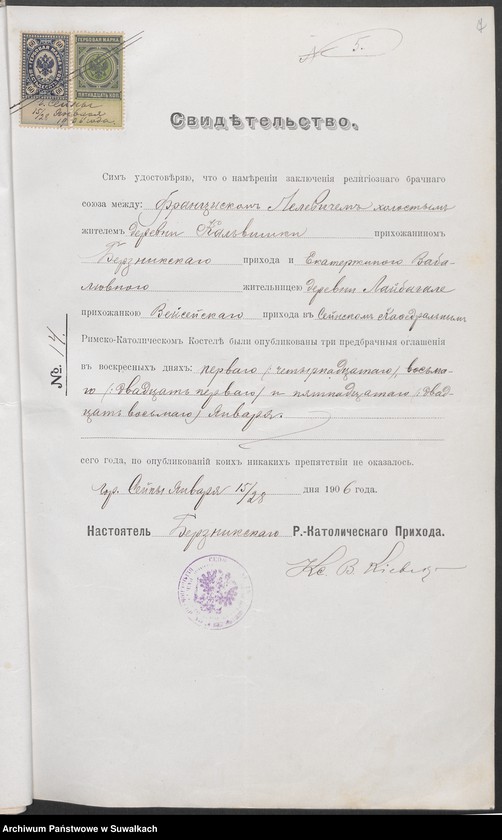 № 5.
г. Сейны
15/28 Января
1906 года
Свидѣтельство.
Симъ удостовѣряю, что о намѣреніи заключенія религіознаго брачнаго
союза между: Францискомъ Пелевичемъ холостымъ
жителемъ деревни Кальвишки прихожаниномъ
Бержникскаго прихода и ЕкатериноюВаба-
лювною жительницею деревни Лайбагале
прихожанкою Вейсейскаго прихода въ Сейнскомъ Каѳедральномъ
Римско-Католическомъ Костелѣ были опубликованы три предбрачныя оглашенія
въ воскресныхъ дняхъ: перваго (:четырнадцатаго) восьма-
го (:двадцать перваго) и пятнадцатаго (:двад-
цать восьмаго) Января.
№. 14.
сего года, по опубликованіи коихъ никакихъ препятствій не оказалось.
гор. Сейны Января 15/28 дня 1906 года.
Настоятель Бержникскаго Р.-Католическаго Прихода.
Кс. В.
Archiwum Państwowe w Suwałkach